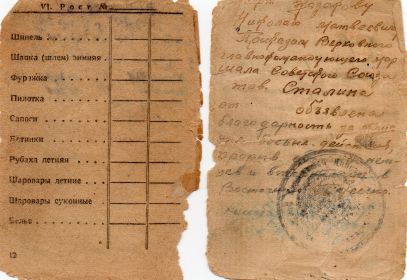 VI. Рост №
Шинель
Шапка (шлем) зимняя
Фуражка
Пилотка
Сапоги
Ботинки
Рубаха летняя
Шаровары летние
Шаровары суконные
Белье
12
Николаю Матвеевичу
Приказом Верховного
главнокомандующего мар
шала Советского Союза
тов. Сталина
от объявлена
благодарность за
прорыв
Восточную